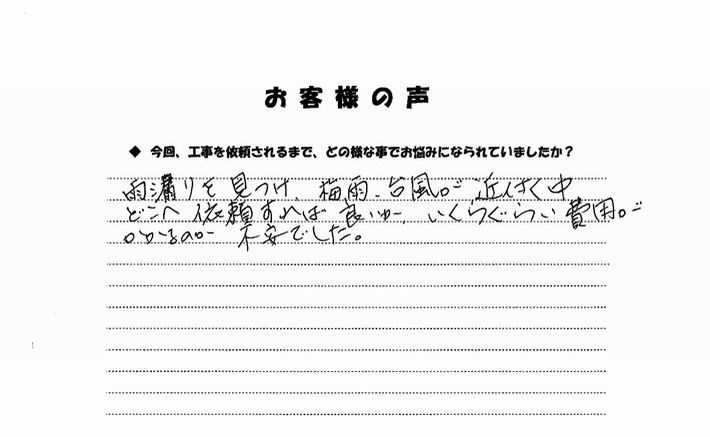 お客様の声
◆ 今回、工事を依頼されるまで、どの様な事でお悩みになられていましたか？
雨漏りを見つけ、梅雨、台風が近付く中
どこへ依頼すれば良いか、いくらぐらい費用が
かかるのか不安でした。